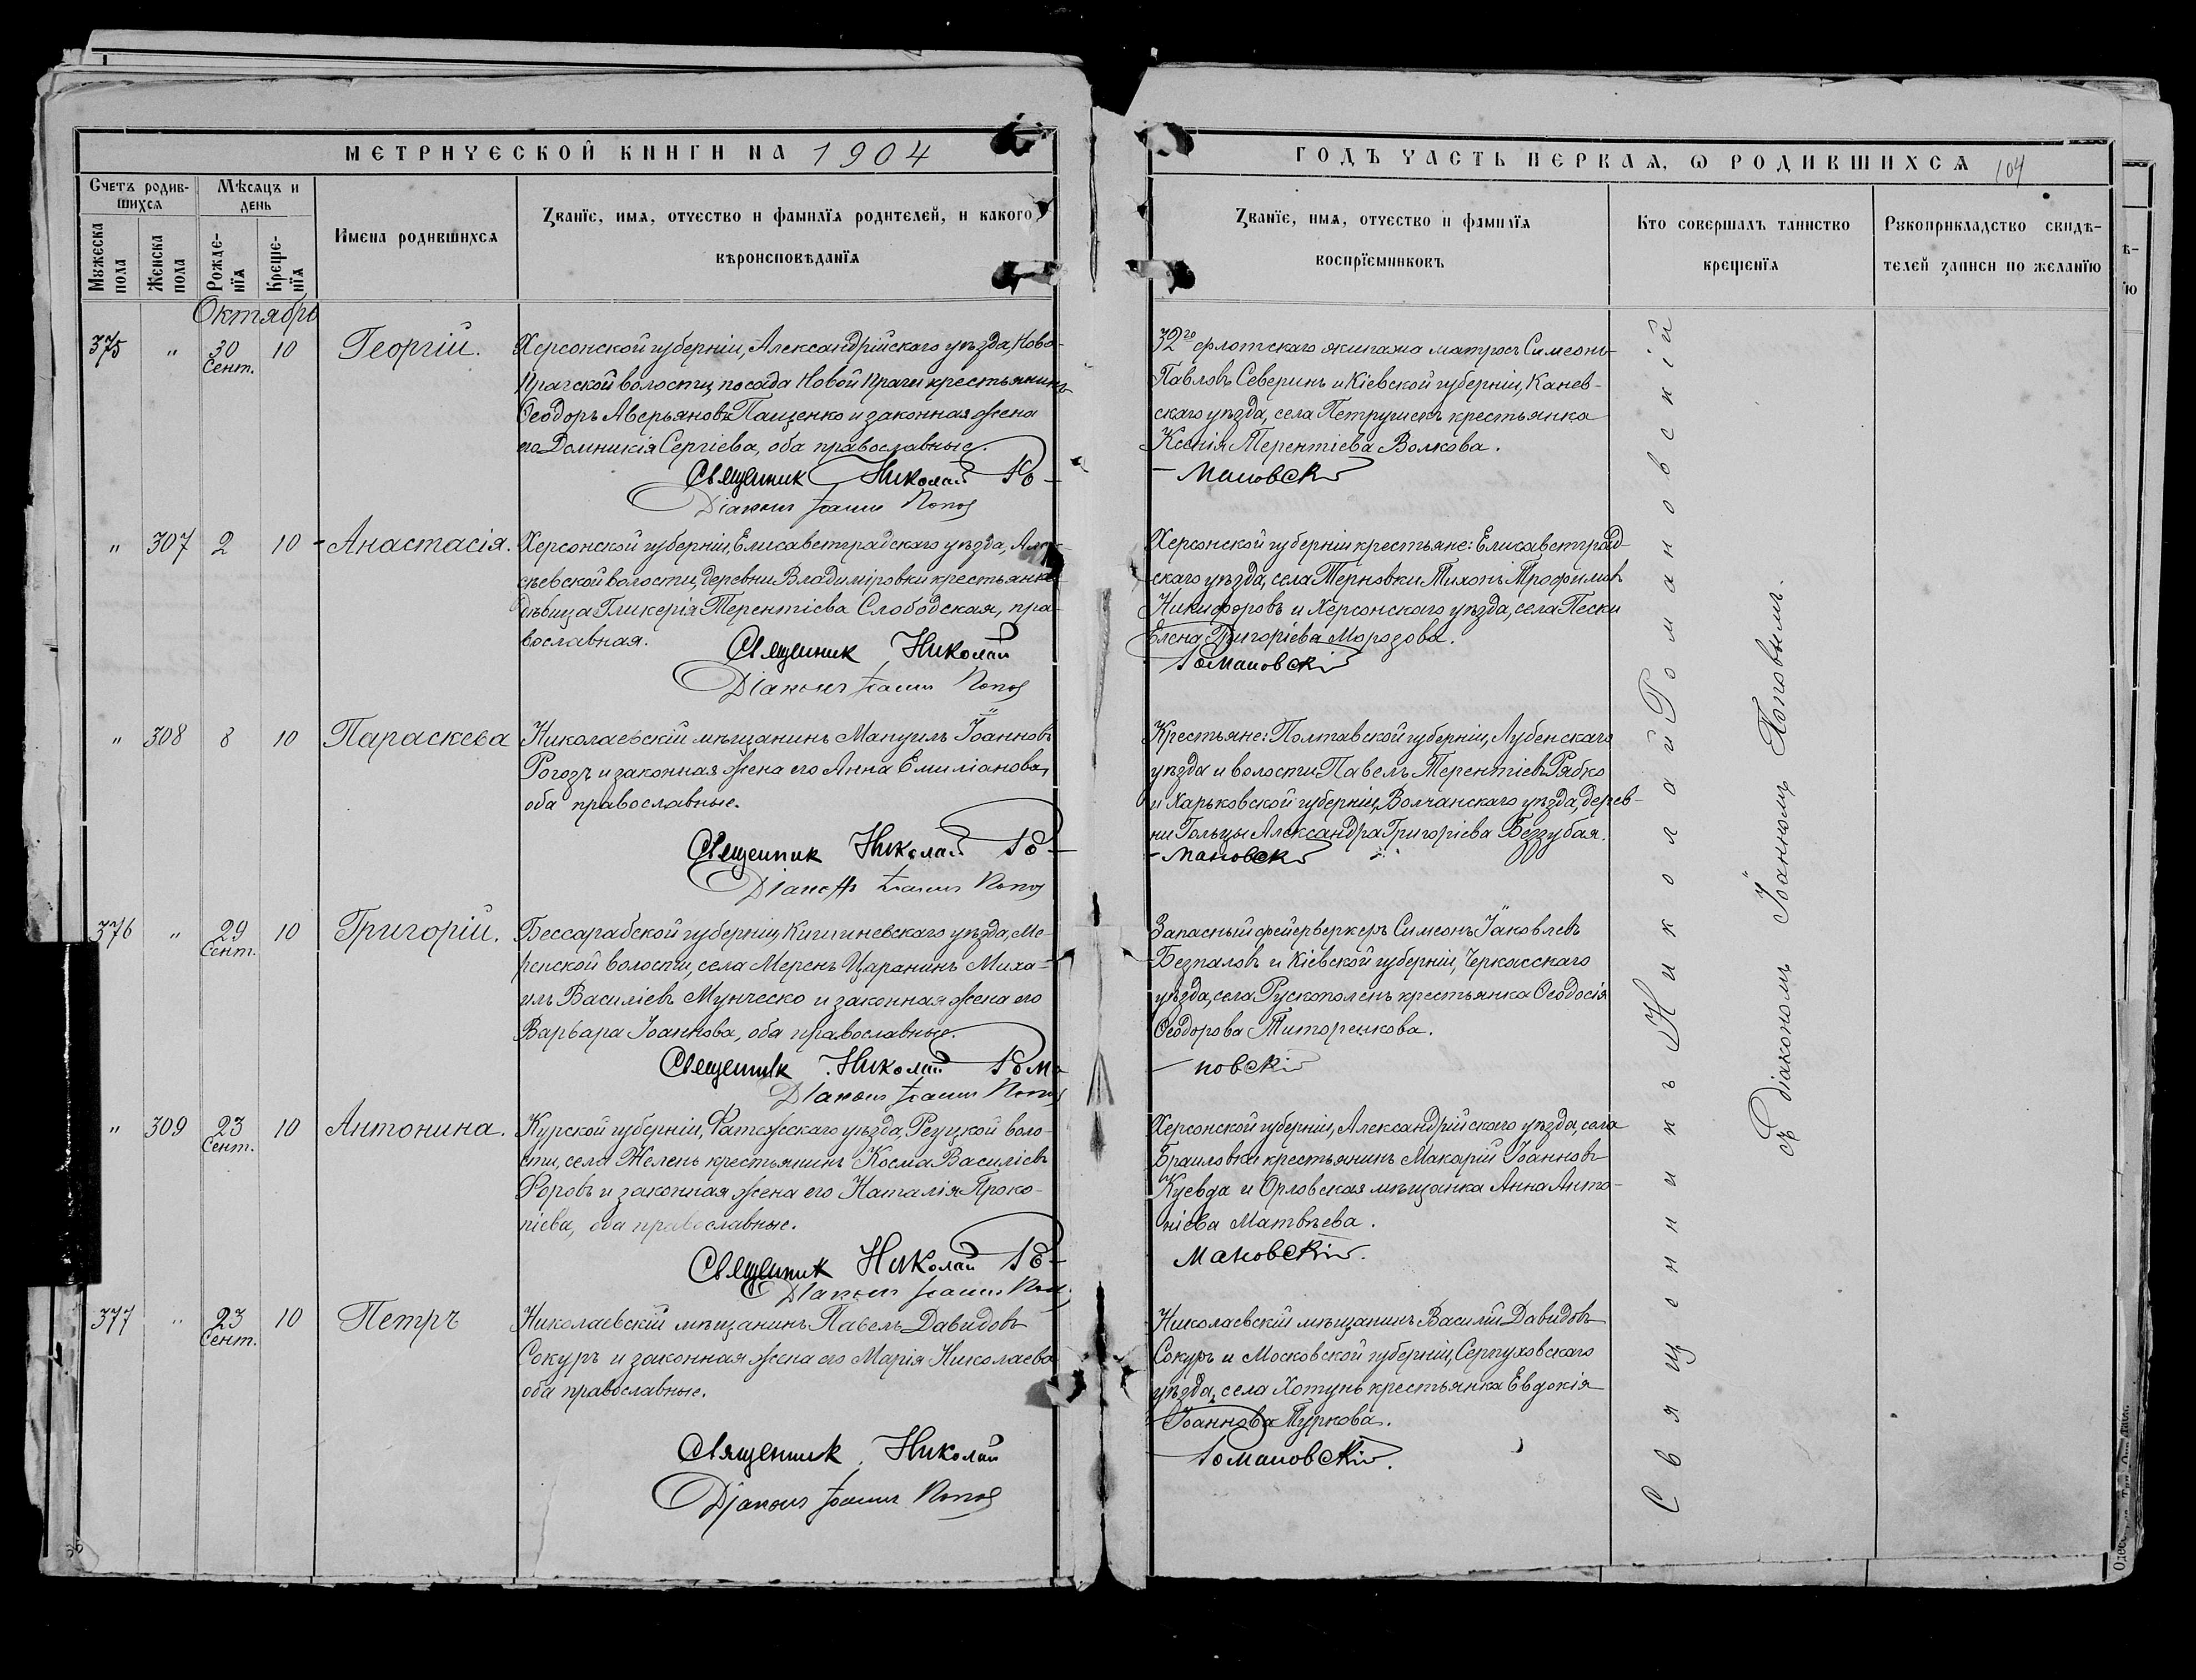 МЕТРИЧЕСКОЙ КНИГИ НА 1904
Счетъ родив-
шихся
Мѣсяцъ и
день
Мужеска
пола
Женска
пола
Рожде-
нія
Креще-
нія
Имена родившихся
Званіе, имя, отчество и фамилія родителей, и какого
вѣроисповѣданія
Октябрь
375 " 30 10 Георгій.
Сент.
Херсонской губерніи, Александрійскаго уѣзда, Ново-
Прагской волости, посада Новой Праги крестьянинъ
Ѳеодоръ Аверьяновъ Пащенко и законная жена
его Домникія Сергіева, оба православные.
Священник Николай Ро-
Діаконъ Іоаннъ Попов
" 307 2 10 Анастасія.
Херсонской губерніи, Елисаветградскаго уѣзда, Алек-
сѣевской волости, деревни Владиміровки крестьянка
дѣвица Гликерія Терентіева Слободская, пра-
вославная.
Священник Николай
Діаконъ Іоаннъ Попов
" 308 8 10 Параскева
Николаевскій мѣщанинъ Мануилъ Іоанновъ
Рогозъ и законная жена его Анна Емиліанова,
оба православные.
Священник Николай Ро-
Іоаннъ Попов
376 " 29 10 Григорій.
Сент.
Бессарабской губерніи, Кишиневскаго уѣзда, Ме-
ренской волости, села Меренъ Царанинъ Миха-
илъ Василіевъ Мунческо и законная жена его
Варвара Іоаннова, оба православные.
Священник Николай Рома-
Діаконъ Іоаннъ Попов
" 309 23 10 Антонина.
Сент.
Курской губерніи, Фатежскаго уѣзда, Реуцкой воло-
сти, села Желень крестьянинъ Косма Василіевъ
Фировъ и законная жена его Наталія Проко-
піева, оба православные.
Священник Николай Ро-
Діаконъ Іоаннъ Попов
377 " 23 10 Петръ
Сент.
Николаевскій мѣщанинъ Павелъ Давидовъ
Сокуръ и законная жена его Марія Николаева
оба православные.
Священник Николай
Діаконъ Іоаннъ Попов
ГОДЪ ЧАСТЬ ПЕРВАЯ, Ѡ РОДИВШИХСЯ 104
Званіе, имя, отчество и фамилія
воспріемниковъ
Кто совершалъ таинство
крещенія
Рукоприкладство свидѣ-
телей записи по желанію
32го флотскаго экипажа матросъ Симеонъ
Павловъ Северинъ и Кіевской губерніи, Канев-
скаго уѣзда, села Петрушекъ крестьянка
Ксенія Терентіева Волкова.
- мановскій
Херсонской губерніи крестьяне: Елисаветград-
скаго уѣзда, села Терновки Тихонъ Трофимовъ
Никифоровъ и Херсонскаго уѣзда, села Пески
Елена Григоріева Морозова.
Романовскій
Крестьяне: Полтавской губерніи, Лубенскаго
уѣзда и волости Павелъ Терентіевъ Рябко
и Харьковской губерніи, Волчанскаго уѣзда, дерев-
ни Гольцы Александра Григоріева Беззубая.
- мановскій
Запасный фейерверкеръ Симеонъ Іаковлевъ
Безпаловъ и Кіевской губерніи, Черкасскаго
уѣзда, села Рускополенъ крестьянка Ѳеодосія
Ѳеодорова Титоренкова.
- новскій
Херсонской губерніи, Александрійскаго уѣзда, села
Браиловки крестьянинъ Макарій Іоанновъ
Куевда и Орловская мѣщанка Анна Анто-
ніева Матвѣева.
мановскій.
Николаевскій мѣщанинъ Василій Давидовъ
Сокуръ и Московской губерніи, Серпуховскаго
уѣзда, села Хотунь крестьянка Евдокія
Іоаннова Туркова.
Романовскій.
Священникъ Николай Романовскій
съ діакономъ Іоанномъ Поповымъ.